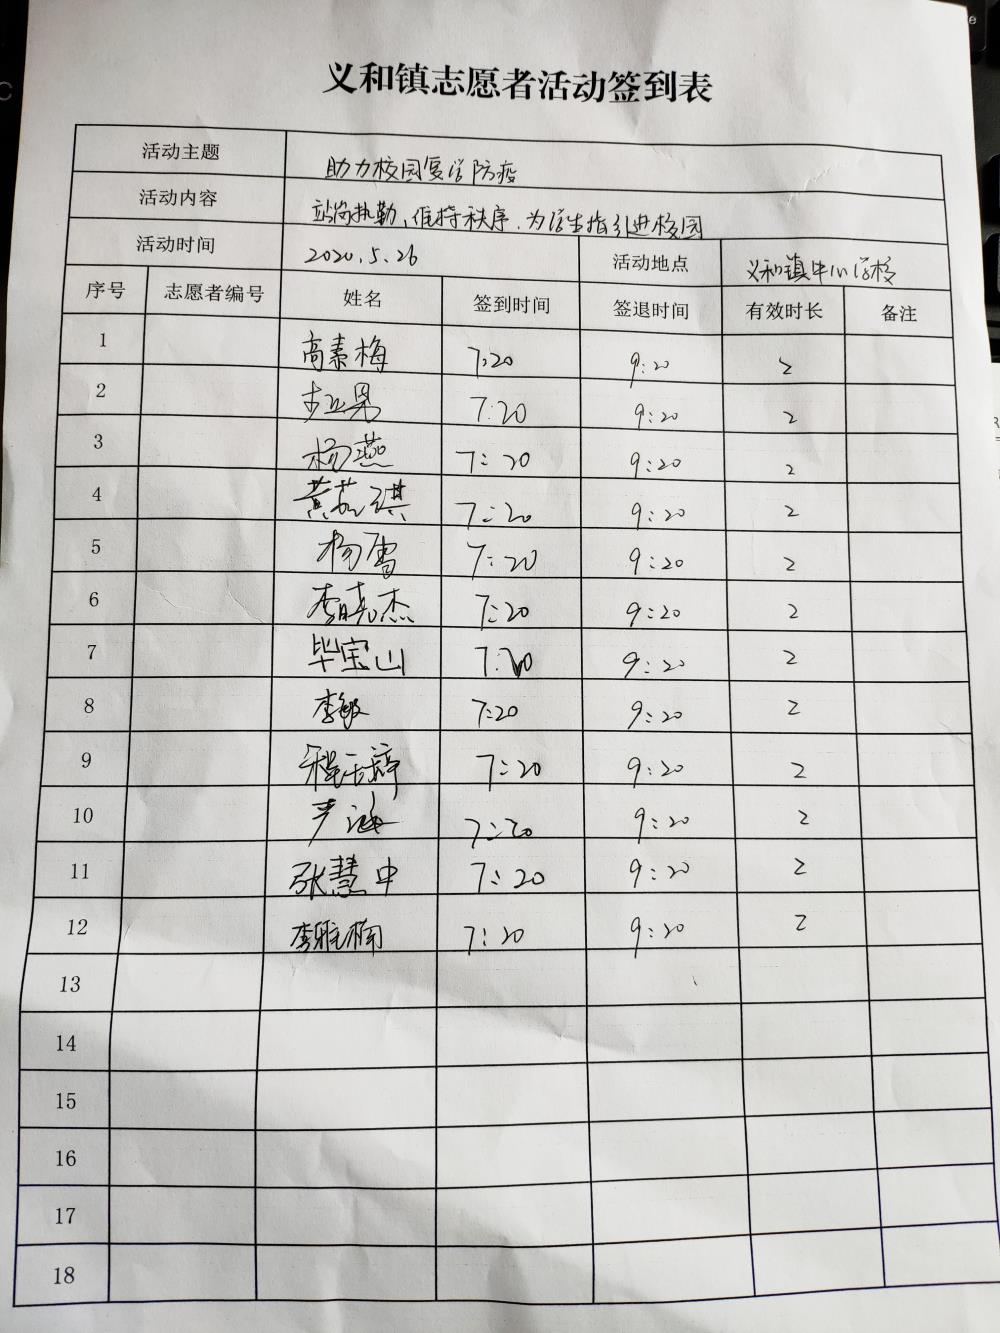 义和镇志愿者活动签到表
活动主题 助力校园复学防疫
活动内容 站岗执勤、维持秩序、为学生指引进校园
活动时间 2020.5.26 活动地点 义和镇中心学校
序号 志愿者编号 姓名 签到时间 签退时间 有效时长 备注
1 高素梅 7:20 9:20 2
2 7:20 9:20 2
3 杨燕 7:20 9:20 2
4 7:20 9:20 2
5 杨雪 7:20 9:20 2
6 李晓杰 7:20 9:20 2
7 毕宝山 7:20 9:20 2
8 李敏 7:20 9:20 2
9 7:20 9:20 2
10 7:20 9:20 2
11 张慧中 7:20 9:20 2
12 李雅楠 7:20 9:20 2
13
14
15
16
17
18